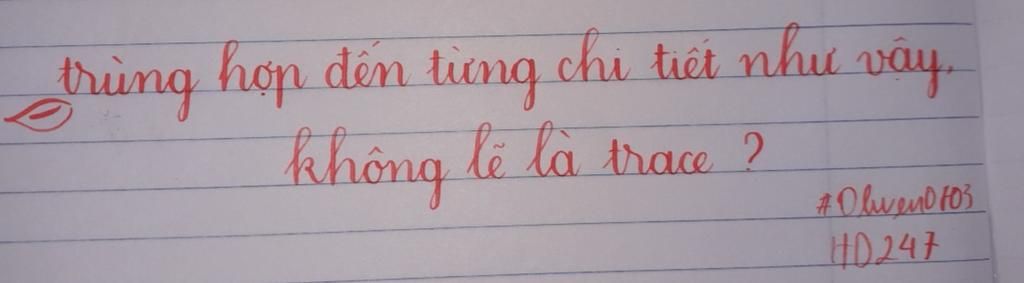 trùng hợp đến từng chi tiết như vậy,
không lẽ là trace ?
#Olwen0103
HD247